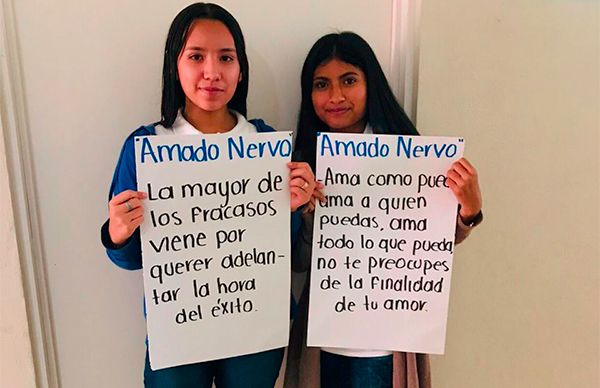 "Amado Nervo"
La mayor de
los fracasos
viene por
querer adelan-
tar la hora
del éxito.
"Amado Nervo"
-Ama como pued
ama a quien
puedas, ama
todo lo que pueda,
no te preocupes
de la finalidad
de tu amor.